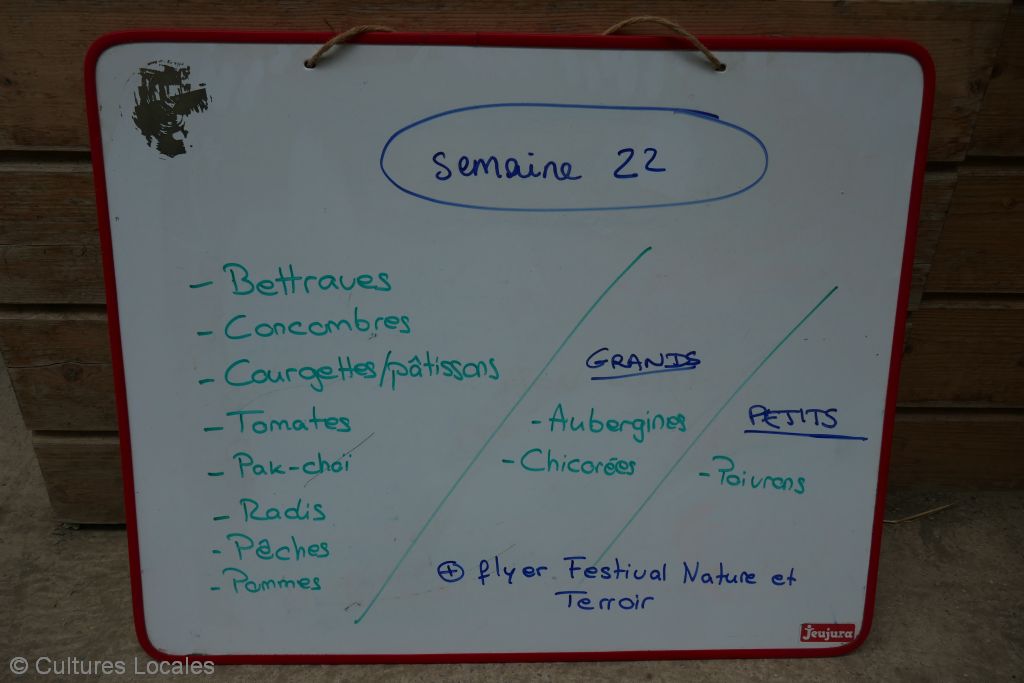 Semaine 22
- Bettraves
- Concombres
- Courgettes/pâtissons
- Tomates
- Pak-choi
- Radis
- Pêches
- Pommes
GRANDS
- Aubergines
- Chicorées
PETITS
- Poivrons
⊕ flyer Festival Nature et
Terroir
Jeujura
© Cultures Locales